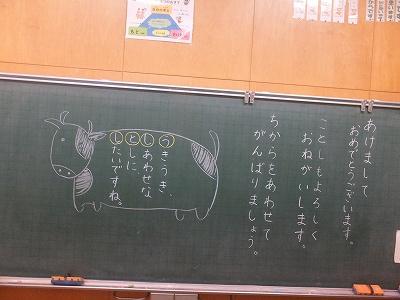 あけまして
おめでとうございます。
ことしもよろしく
おねがいします。
ちからをあわせて
がんばりましょう。
うきうき、
しあわせな
としに、
したいですね。